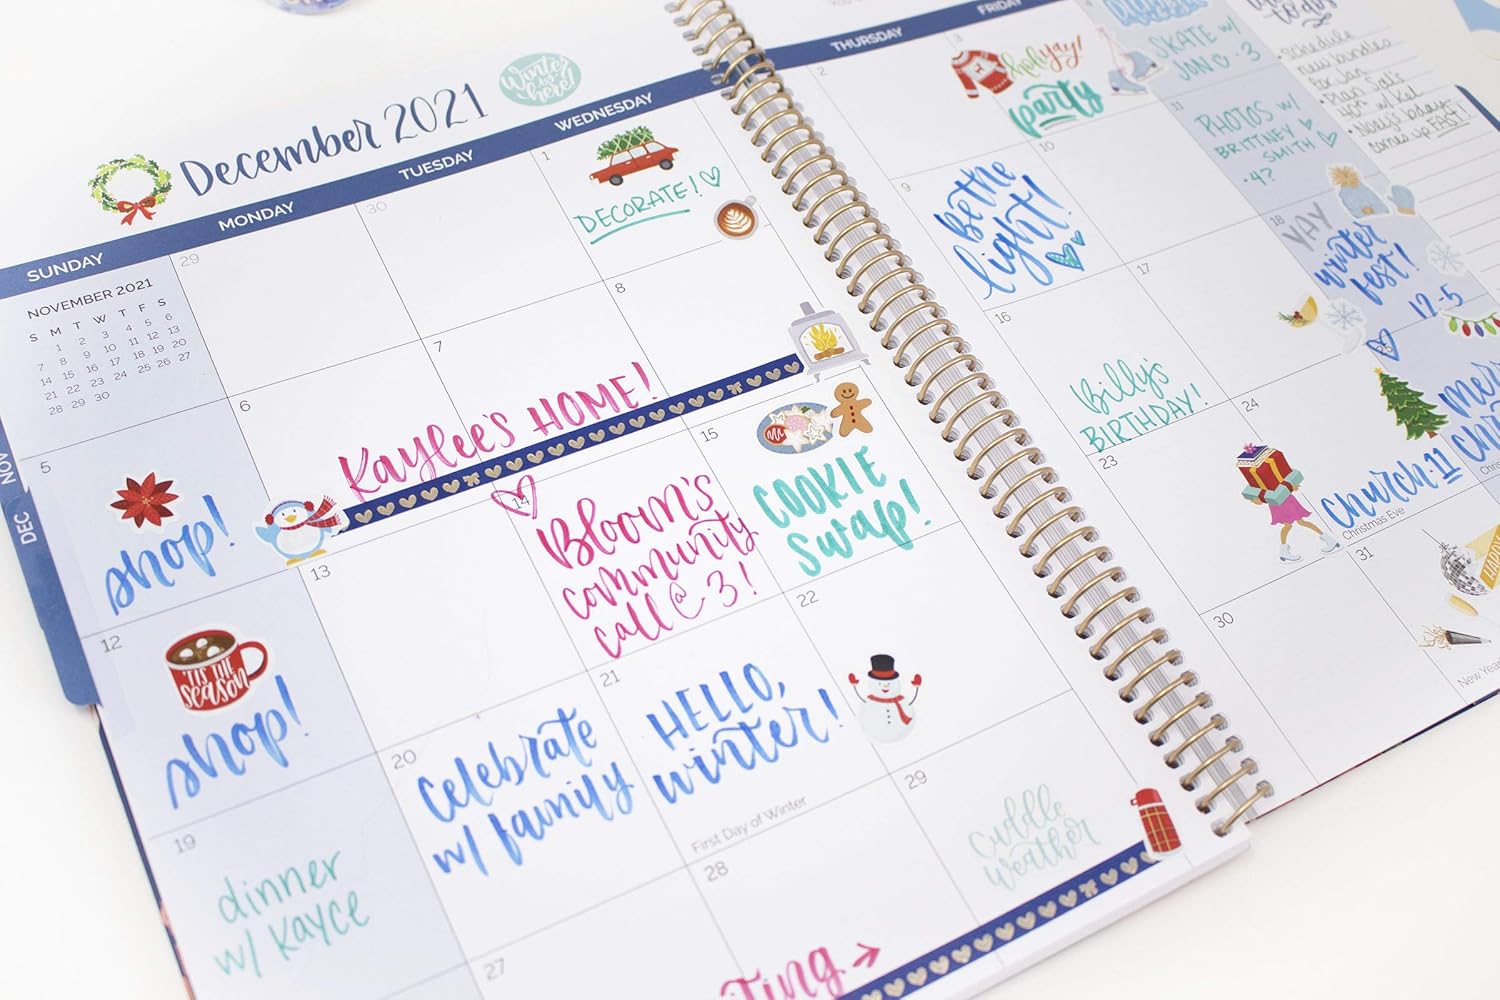 December 2021
Winter is here!
SUNDAY
MONDAY
TUESDAY
WEDNESDAY
THURSDAY
FRIDAY
NOV
DEC
NOVEMBER 2021
S M T W T F S
1 2 3 4 5 6
7 8 9 10 11 12 13
14 15 16 17 18 19 20
21 22 23 24 25 26 27
28 29 30
29
30
1
DECORATE!
2
3
holiyay!
party
4
SKATE w/
JON 3
5
shop!
6
7
8
KAYLEE'S HOME!
9
Be the
light!
10
11
PHOTOS w/
BRITTNEY
SMITH
• 4?
12
'TIS THE
SEASON
shop!
13
14
Bloom's
community
call @ 3!
15
COOKIE
SWAP!
16
Billy's
BIRTHDAY!
17
18
YAY
winter
fest!
12-5
19
dinner
w/ KAYCE
20
Celebrate
w/ family
21
HELLO,
winter!
First Day of Winter
22
23
24
Church • 11
Christmas Eve
27
28
29
cuddle
weather
30
31
to do's
• Schedule
new bundles
for Jan
• Plan Sats
w/ Kel
• Noey's bday
comes up FAST!